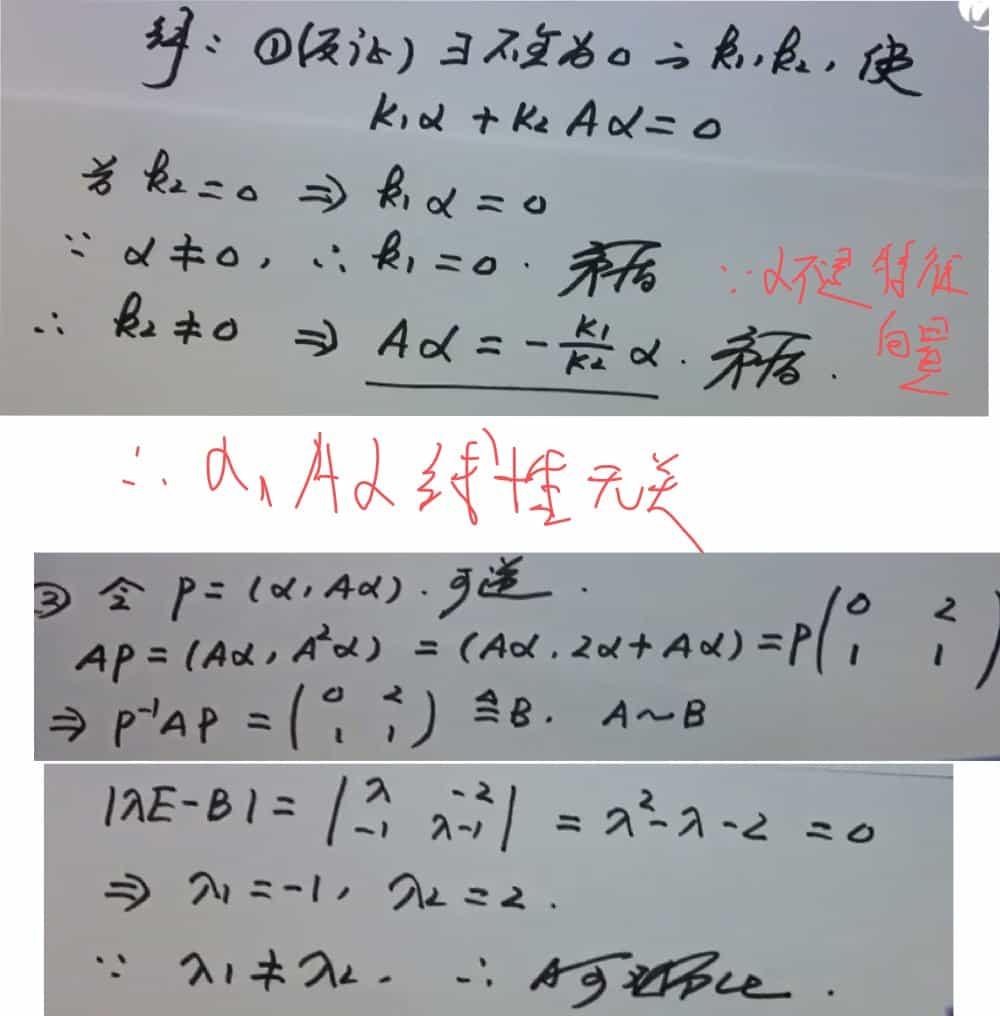 解: ①(反法) ∃不全为0的 k₁,k₂, 使
k₁α + k₂Aα = 0
若 k₂ = 0 ⇒ k₁α = 0
∵ α ≠ 0, ∴ k₁ = 0. 矛盾
∵ α不是特征
向量
∴ k₂ ≠ 0 ⇒ Aα = -k₁/k₂ α. 矛盾.
∴ α, Aα 线性无关
③ 令 P = (α, Aα). 可逆.
AP = (Aα, A²α) = (Aα, 2α + Aα) = P(0 2; 1 1)
⇒ P⁻¹AP = (0 2; 1 1) ≜ B. A ~ B
|λE - B| = |λ -2; -1 λ-1| = λ² - λ - 2 = 0
⇒ λ₁ = -1, λ₂ = 2.
∵ λ₁ ≠ λ₂. ∴ A可